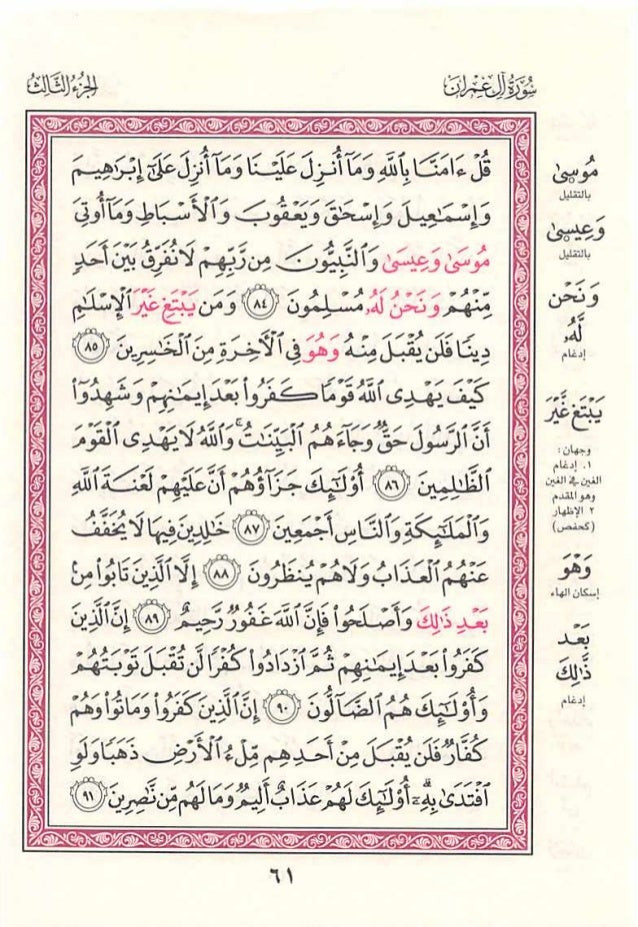 سُورَةُ آلِ عِمْرَانَ
الجُزْءُ الثَّالِثُ
قُلْ ءَامَنَّا بِاللَّهِ وَمَآ أُنزِلَ عَلَيْنَا وَمَآ أُنزِلَ عَلَىٰٓ إِبْرَٰهِيمَ
وَإِسْمَٰعِيلَ وَإِسْحَٰقَ وَيَعْقُوبَ وَالْأَسْبَاطِ وَمَآ أُوتِىَ
مُوسَىٰ وَعِيسَىٰ وَالنَّبِيُّونَ مِن رَّبِّهِمْ لَا نُفَرِّقُ بَيْنَ أَحَدٍ
مِّنْهُمْ وَنَحْنُ لَهُۥ مُسْلِمُونَ ٨٤ وَمَن يَبْتَغِ غَيْرَ الْإِسْلَٰمِ
دِينًا فَلَن يُقْبَلَ مِنْهُ وَهُوَ فِى الْءَاخِرَةِ مِنَ الْخَٰسِرِينَ ٨٥
كَيْفَ يَهْدِى اللَّهُ قَوْمًا كَفَرُوا۟ بَعْدَ إِيمَٰنِهِمْ وَشَهِدُوٓا۟
أَنَّ الرَّسُولَ حَقٌّ وَجَآءَهُمُ الْبَيِّنَٰتُ ۚ وَاللَّهُ لَا يَهْدِى الْقَوْمَ
الظَّٰلِمِينَ ٨٦ أُو۟لَٰٓئِكَ جَزَآؤُهُمْ أَنَّ عَلَيْهِمْ لَعْنَةَ اللَّهِ
وَالْمَلَٰٓئِكَةِ وَالنَّاسِ أَجْمَعِينَ ٨٧ خَٰلِدِينَ فِيهَا لَا يُخَفَّفُ
عَنْهُمُ الْعَذَابُ وَلَا هُمْ يُنظَرُونَ ٨٨ إِلَّا الَّذِينَ تَابُوا۟ مِنۢ
بَعْدِ ذَٰلِكَ وَأَصْلَحُوا۟ فَإِنَّ اللَّهَ غَفُورٌ رَّحِيمٌ ٨٩ إِنَّ الَّذِينَ
كَفَرُوا۟ بَعْدَ إِيمَٰنِهِمْ ثُمَّ ازْدَادُوا۟ كُفْرًا لَّن تُقْبَلَ تَوْبَتُهُمْ
وَأُو۟لَٰٓئِكَ هُمُ الضَّآلُّونَ ٩٠ إِنَّ الَّذِينَ كَفَرُوا۟ وَمَاتُوا۟ وَهُمْ
كُفَّارٌ فَلَن يُقْبَلَ مِنْ أَحَدِهِم مِّلْءُ الْأَرْضِ ذَهَبًا وَلَوِ
افْتَدَىٰ بِهِۦٓ ۗ أُو۟لَٰٓئِكَ لَهُمْ عَذَابٌ أَلِيمٌ وَمَا لَهُم مِّن نَّٰصِرِينَ ٩١
مُوسَىٰ
بالتقليل
وَعِيسَىٰ
بالتقليل
وَنَحْن
لَّهُۥ
إدغام
يَبْتَغ غَّيْرَ
وجهان:
١. إدغام
الغين في الغين
وهو المقدم
٢ الإظهار
(كحفص)
وَهْوَ
إسكان الهاء
بَعْد
ذَّٰلِكَ
إدغام
٦١